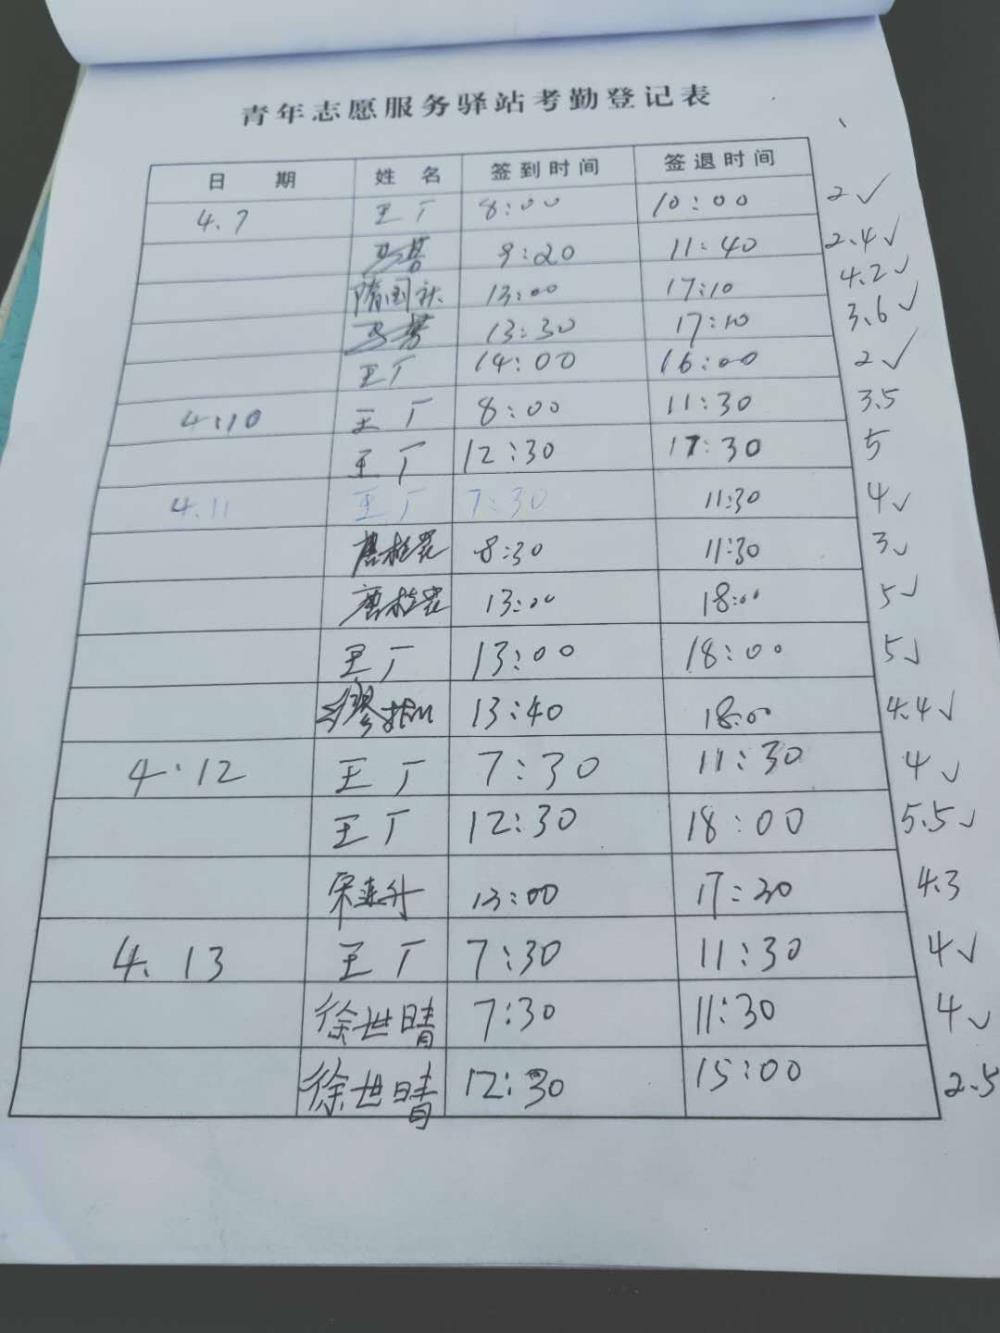 青年志愿服务驿站考勤登记表
日 期 姓 名 签到时间 签退时间
4.7 王厂 8:00 10:00 2✓
9:20 11:40 2.4✓
隋国社 13:00 17:10 4.2✓
13:30 17:10 3.6✓
王厂 14:00 16:00 2✓
4.10 王厂 8:00 11:30 3.5
王厂 12:30 17:30 5
4.11 王厂 7:30 11:30 4✓
8:30 11:30 3✓
13:00 18:00 5✓
王厂 13:00 18:00 5✓
13:40 18:00 4.4✓
4.12 王厂 7:30 11:30 4✓
王厂 12:30 18:00 5.5✓
宋连升 13:00 17:30 4.3
4.13 王厂 7:30 11:30 4✓
徐世晴 7:30 11:30 4✓
徐世晴 12:30 15:00 2.5